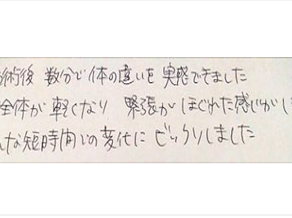 術後 数分で体の違いを実感できました
全体が軽くなり 緊張がほぐれた感じがし
な短時間での変化にびっくりしました